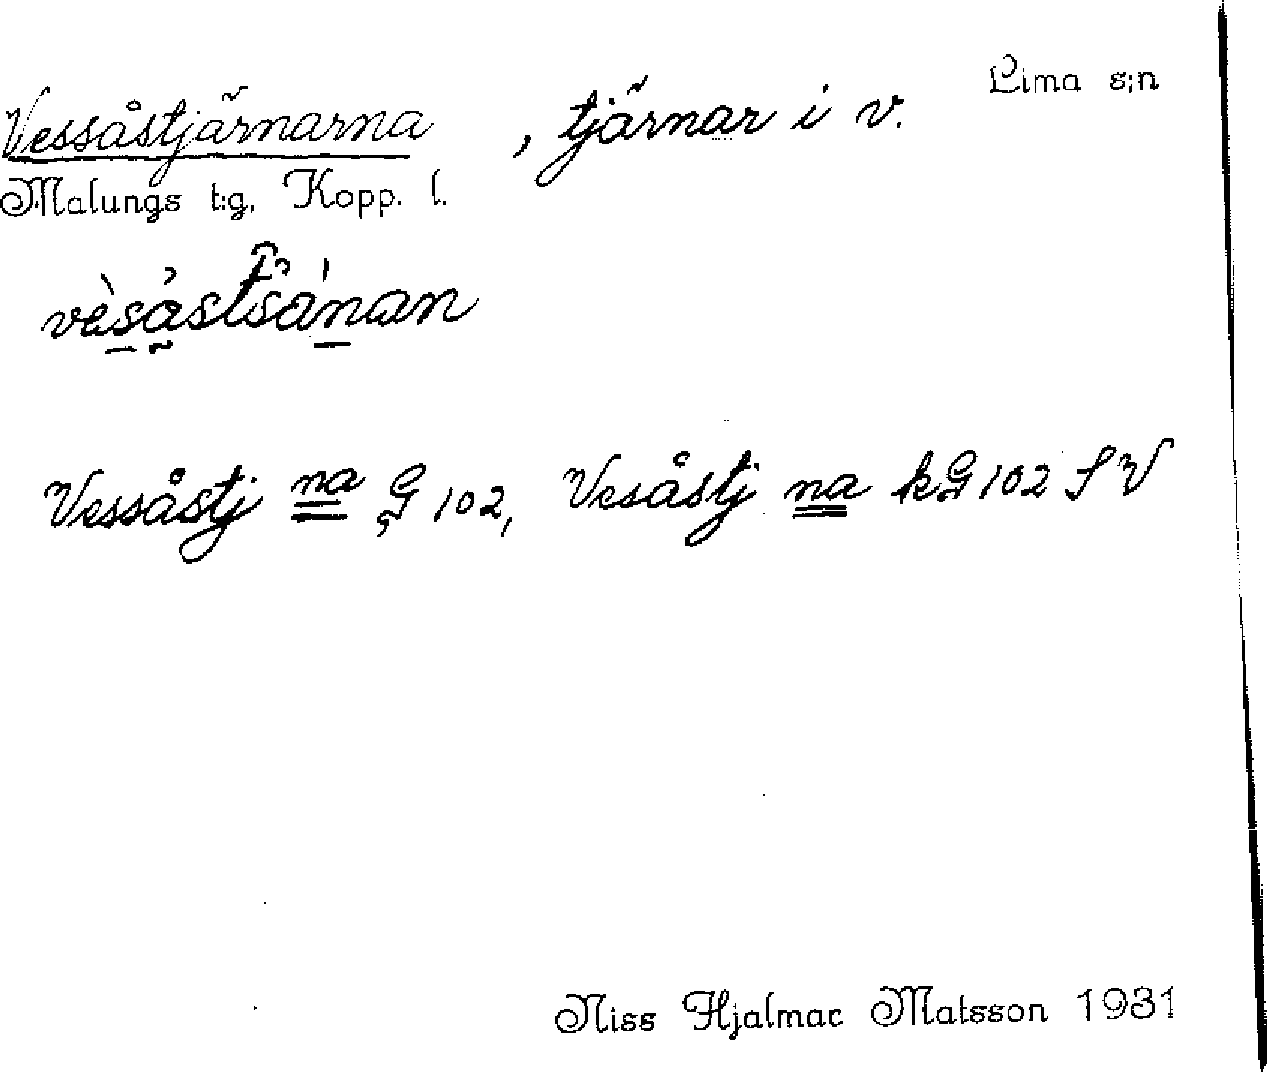 Vessåstjärnarna , tjärnar i v. Lima s:n
Malungs t:g, Kopp. l.
Vessåstj na G 102, Vesåstj na kG 102 SV
Niss Hjalmar Matsson 1931